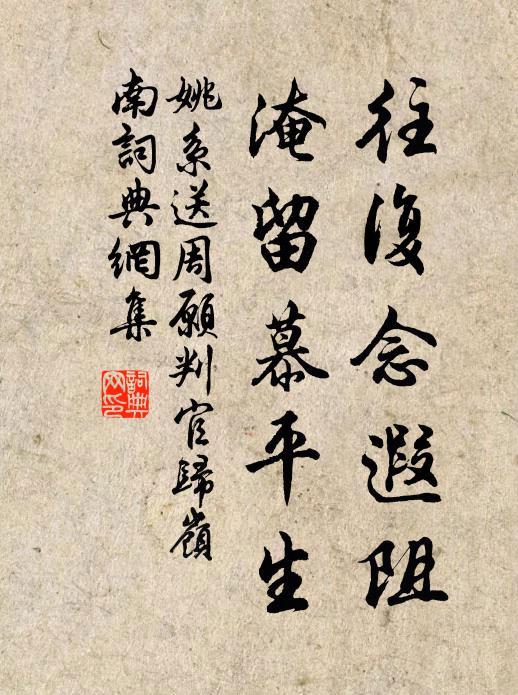 往復念遐阻
淹留慕平生
姚系送周願判官歸嶺
南詞典網集
詞典
网印